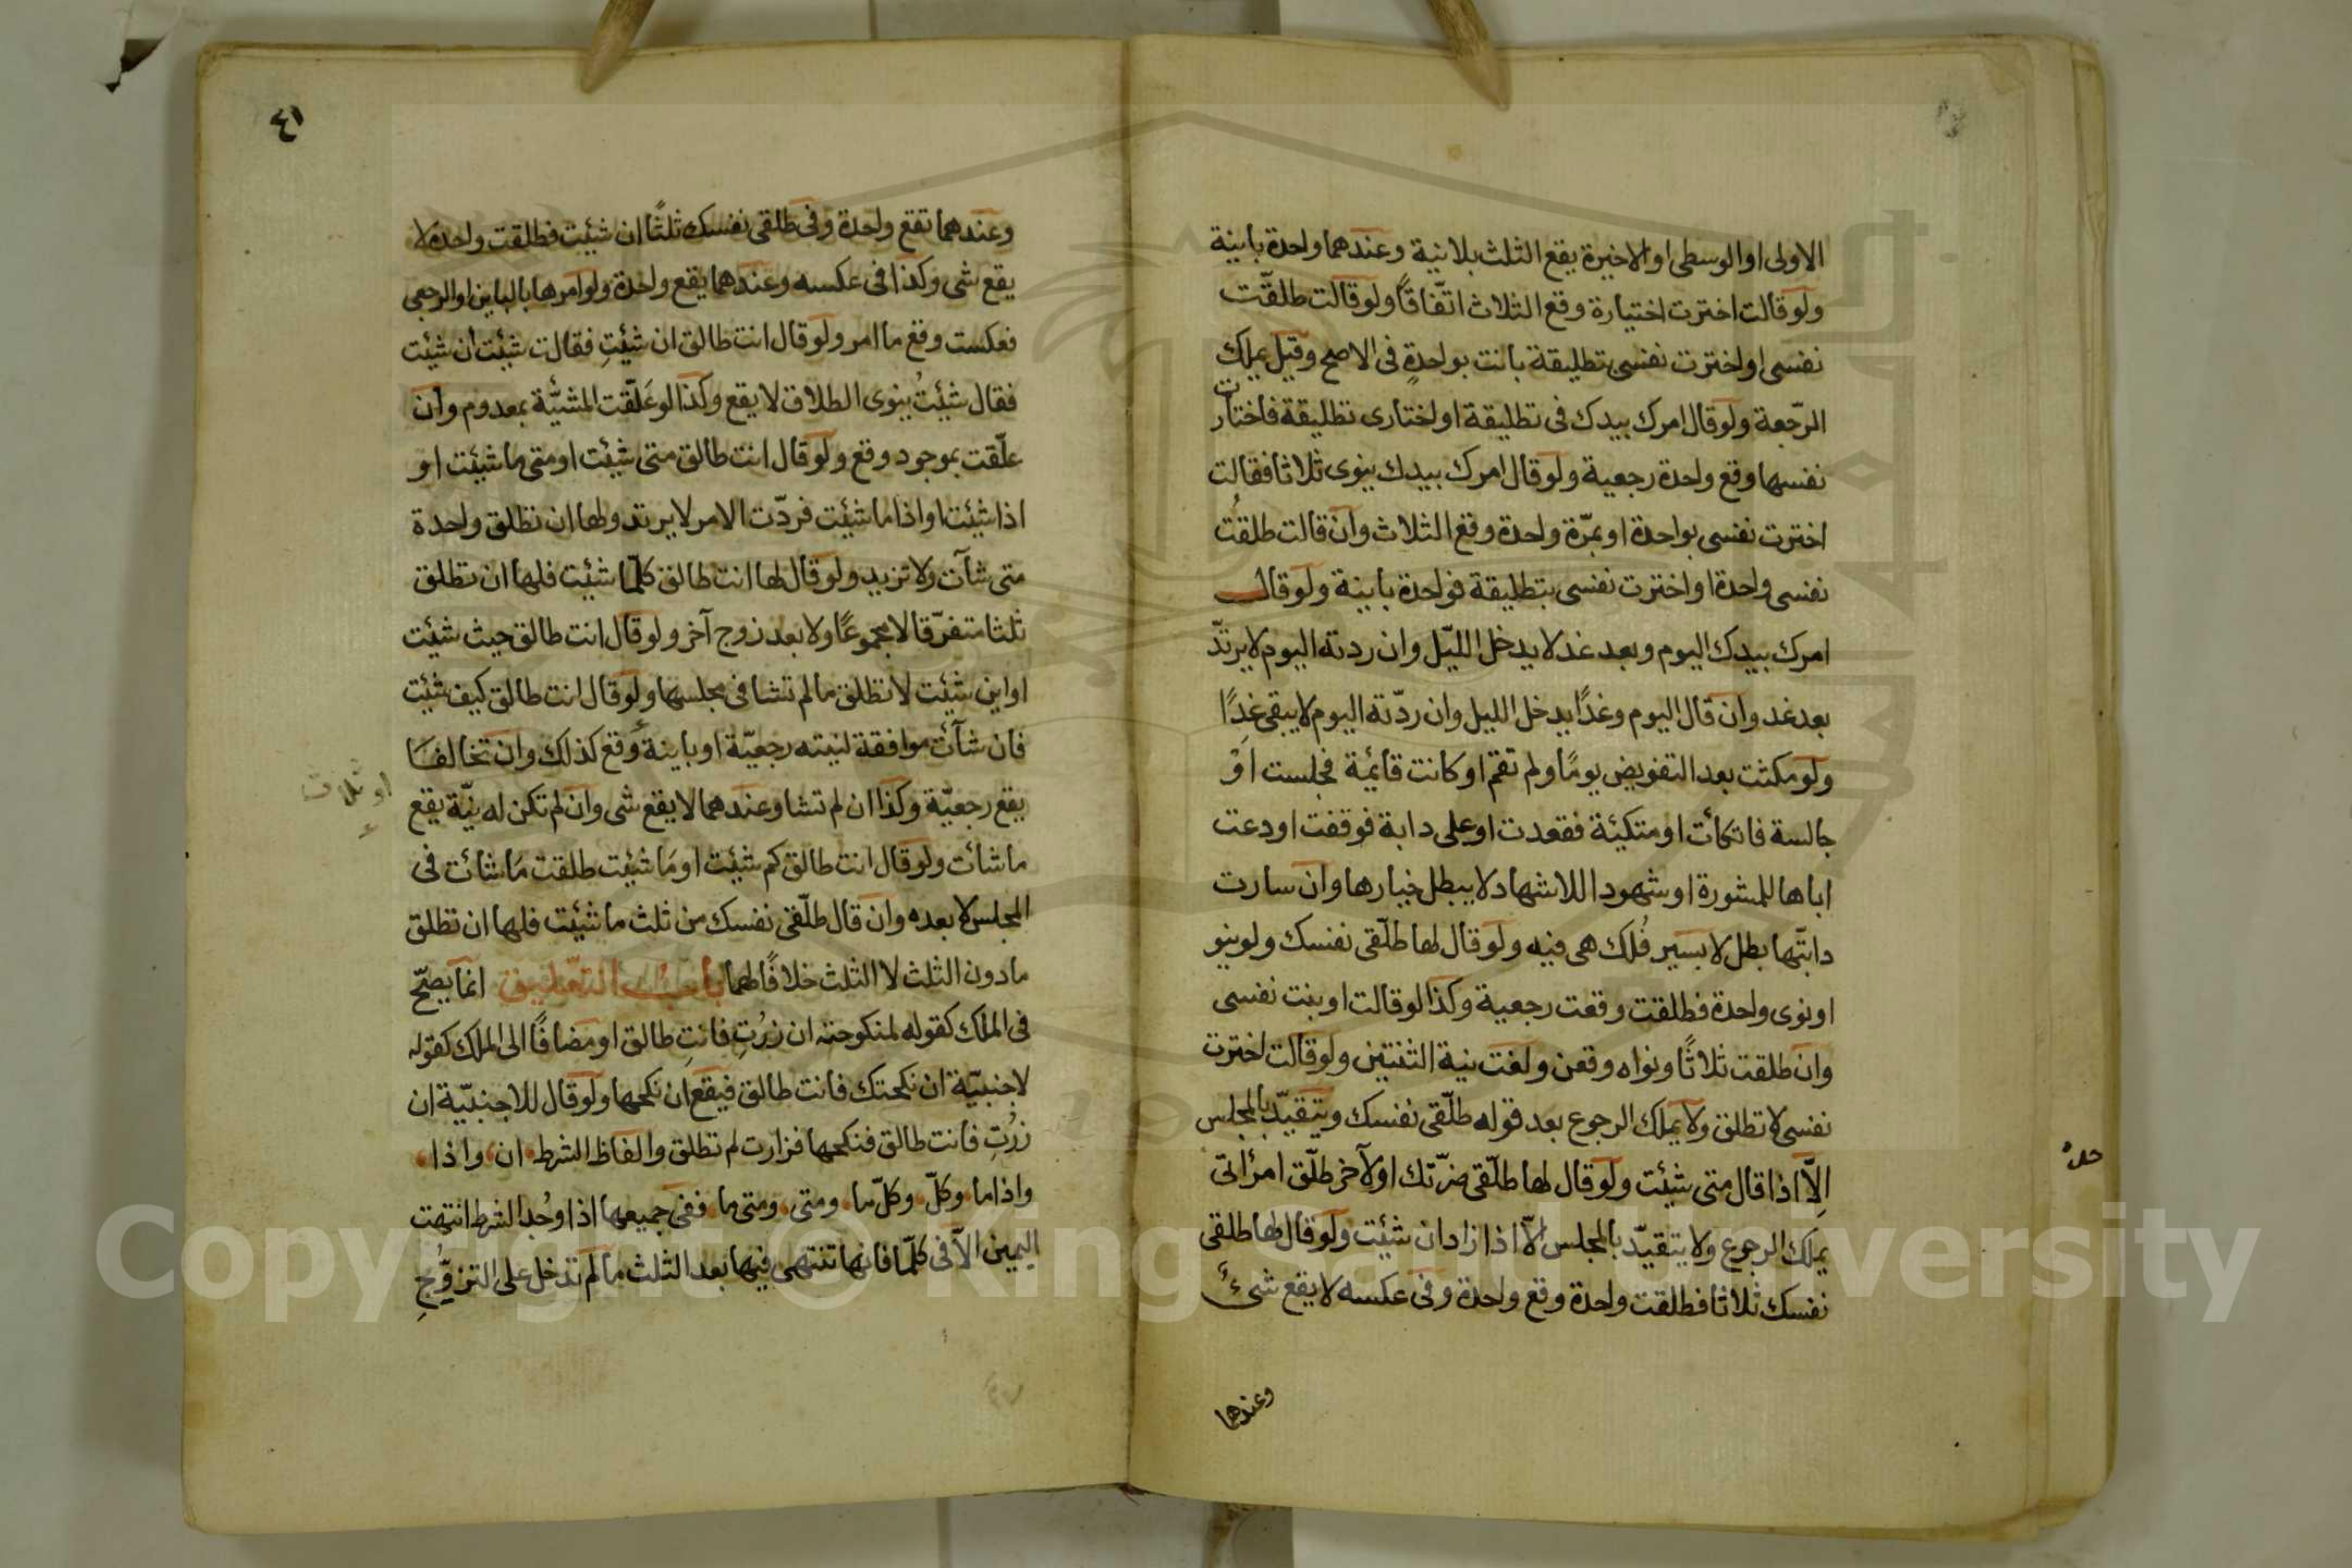 الاولى او الوسطى او الاخيرة يقع الثلث بلا نية وعندهما واحدة باينة
ولو قالت اخترت اختيارة وقع الثلاث اتّفاقًا ولو قالت طلقّت
نفسى او اخترت نفسى بتطليقة بانت بواحدةٍ فى الاصح وقيل يملك
الرّجعة ولو قال امرك بيدك فى تطليقة او اختارى تطليقة فاختارت
نفسها وقع واحدة رجعية ولو قال امرك بيدك ينوى ثلاثا فقالت
اخترت نفسى بواحدة او بمرّة واحدة وقع الثلاث وان قالت طلقتُ
نفسى واحدة او اخترت نفسى بتطليقة فواحدة باينة ولو قال
امرك بيدك اليوم وبعد غد لا يدخل الليّل وان ردته اليوم لا يرتدّ
بعد غد وان قال اليوم وغدًا يدخل الليل وان ردّته اليوم لا يبقى غدًا
ولو مكثت بعد التفويض يومًا ولم تقم او كانت قائمة فجلست اوْ
جالسة فاتكأت او متكيئة فقعدت او على دابة فوقفت او دعت
اباها للمشورة او شهودا للاشهاد لا يبطل خيارها وان سارت
دابتّها بطل لا بسير فُلك هى فيه ولو قال لها طلّقى نفسك ولو ينو
او نوى واحدة فطلقت وقعت رجعية وكذا لو قالت اوبنت نفسى
وان طلقت ثلاثًا ونواه وقعن ولغت نية الثنتين ولو قالت اخترت
نفسى لا تطلق ولا يملك الرجوع بعد قوله طلّقى نفسك ويتقيّد بالمجلس
اِلاّ اذا قال متى شئت ولو قال لها طلّقى ضرّتك او لآخر طلّق امرأتى
يملك الرجوع ولا يتقيّد بالمجلس الاّ اذا زاد ان شئت ولو قال لها طلقى
نفسك ثلاثا فطلقت واحدة وقع واحدة وفى عكسه لا يقع شئ
وعندهما
٤١
وعندهما تقع واحدة وفى طلقى نفسك ثلثًا ان شيئت فطلقت واحدة لا
يقع شى وكذا فى عكسه وعندهما يقع واحدة ولو امرها بالباين او الرجعى
فعكست وقع ما امر ولو قال انت طالق ان شيئتِ فقالت شيئت ان شيئت
فقال شيئتُ ينوى الطلاق لا يقع وكذا لو عَلّقت المشيّة بمعدوم وان
علّقت بموجود وقع ولو قال انت طالق متى شيئت او متى ما شيئت او
اذا شيئت او اذا ما شيئت فردّت الامر لا يرتد ولها ان تطلق واحدة
متى شآت ولا تزيد ولو قال لها انت طالق كلّما شيئت فلها ان تطلق
ثلثا متفرّقا لا مجموعًا ولا بعد زوج آخر ولو قال انت طالق حيث شيئت
او اين شيئت لا تطلق ما لم تشا فى مجلسها ولو قال انت طالق كيف شيئت
فان شآئت موافقة لنيته رجعيّة او باينة وقع كذلك وان تخالفا
او ثلاث
يقع رجعيّة وكذا ان لم تشا وعندهما لا يقع شى وان لم تكن له نيّة يقع
ما شأت ولو قال انت طالق كم شيئت او مَا شيئت طلقت مَا شائت فى
المجلس لا بعده وان قال طلّقى نفسك من ثلث ما شيئت فلها ان تطلق
ما دون الثلث لا الثلث خلافًا لهما باب التعليق انما يصحّ
فى الملك كقوله لمنكوحته ان زرتِ فانتِ طالق او مضافًا الى الملك كقوله
لاجنبيّة ان نكحتك فانت طالق فيقع ان نكحها ولو قال للاجنبيّة ان
زرتِ فانت طالق فنكحها فزارت لم تطلق والفاظ الشرط ان واذا
واذا ما وكلّ وكلّما ومتى ومتى ما ففى جميعها اذا وُجد الشرط انتهت
اليمين الاّ فى كلّما فانها تنتهى فيها بعد الثلث ما لم تدخل على التزوّجِ
Copyright © King Saud University